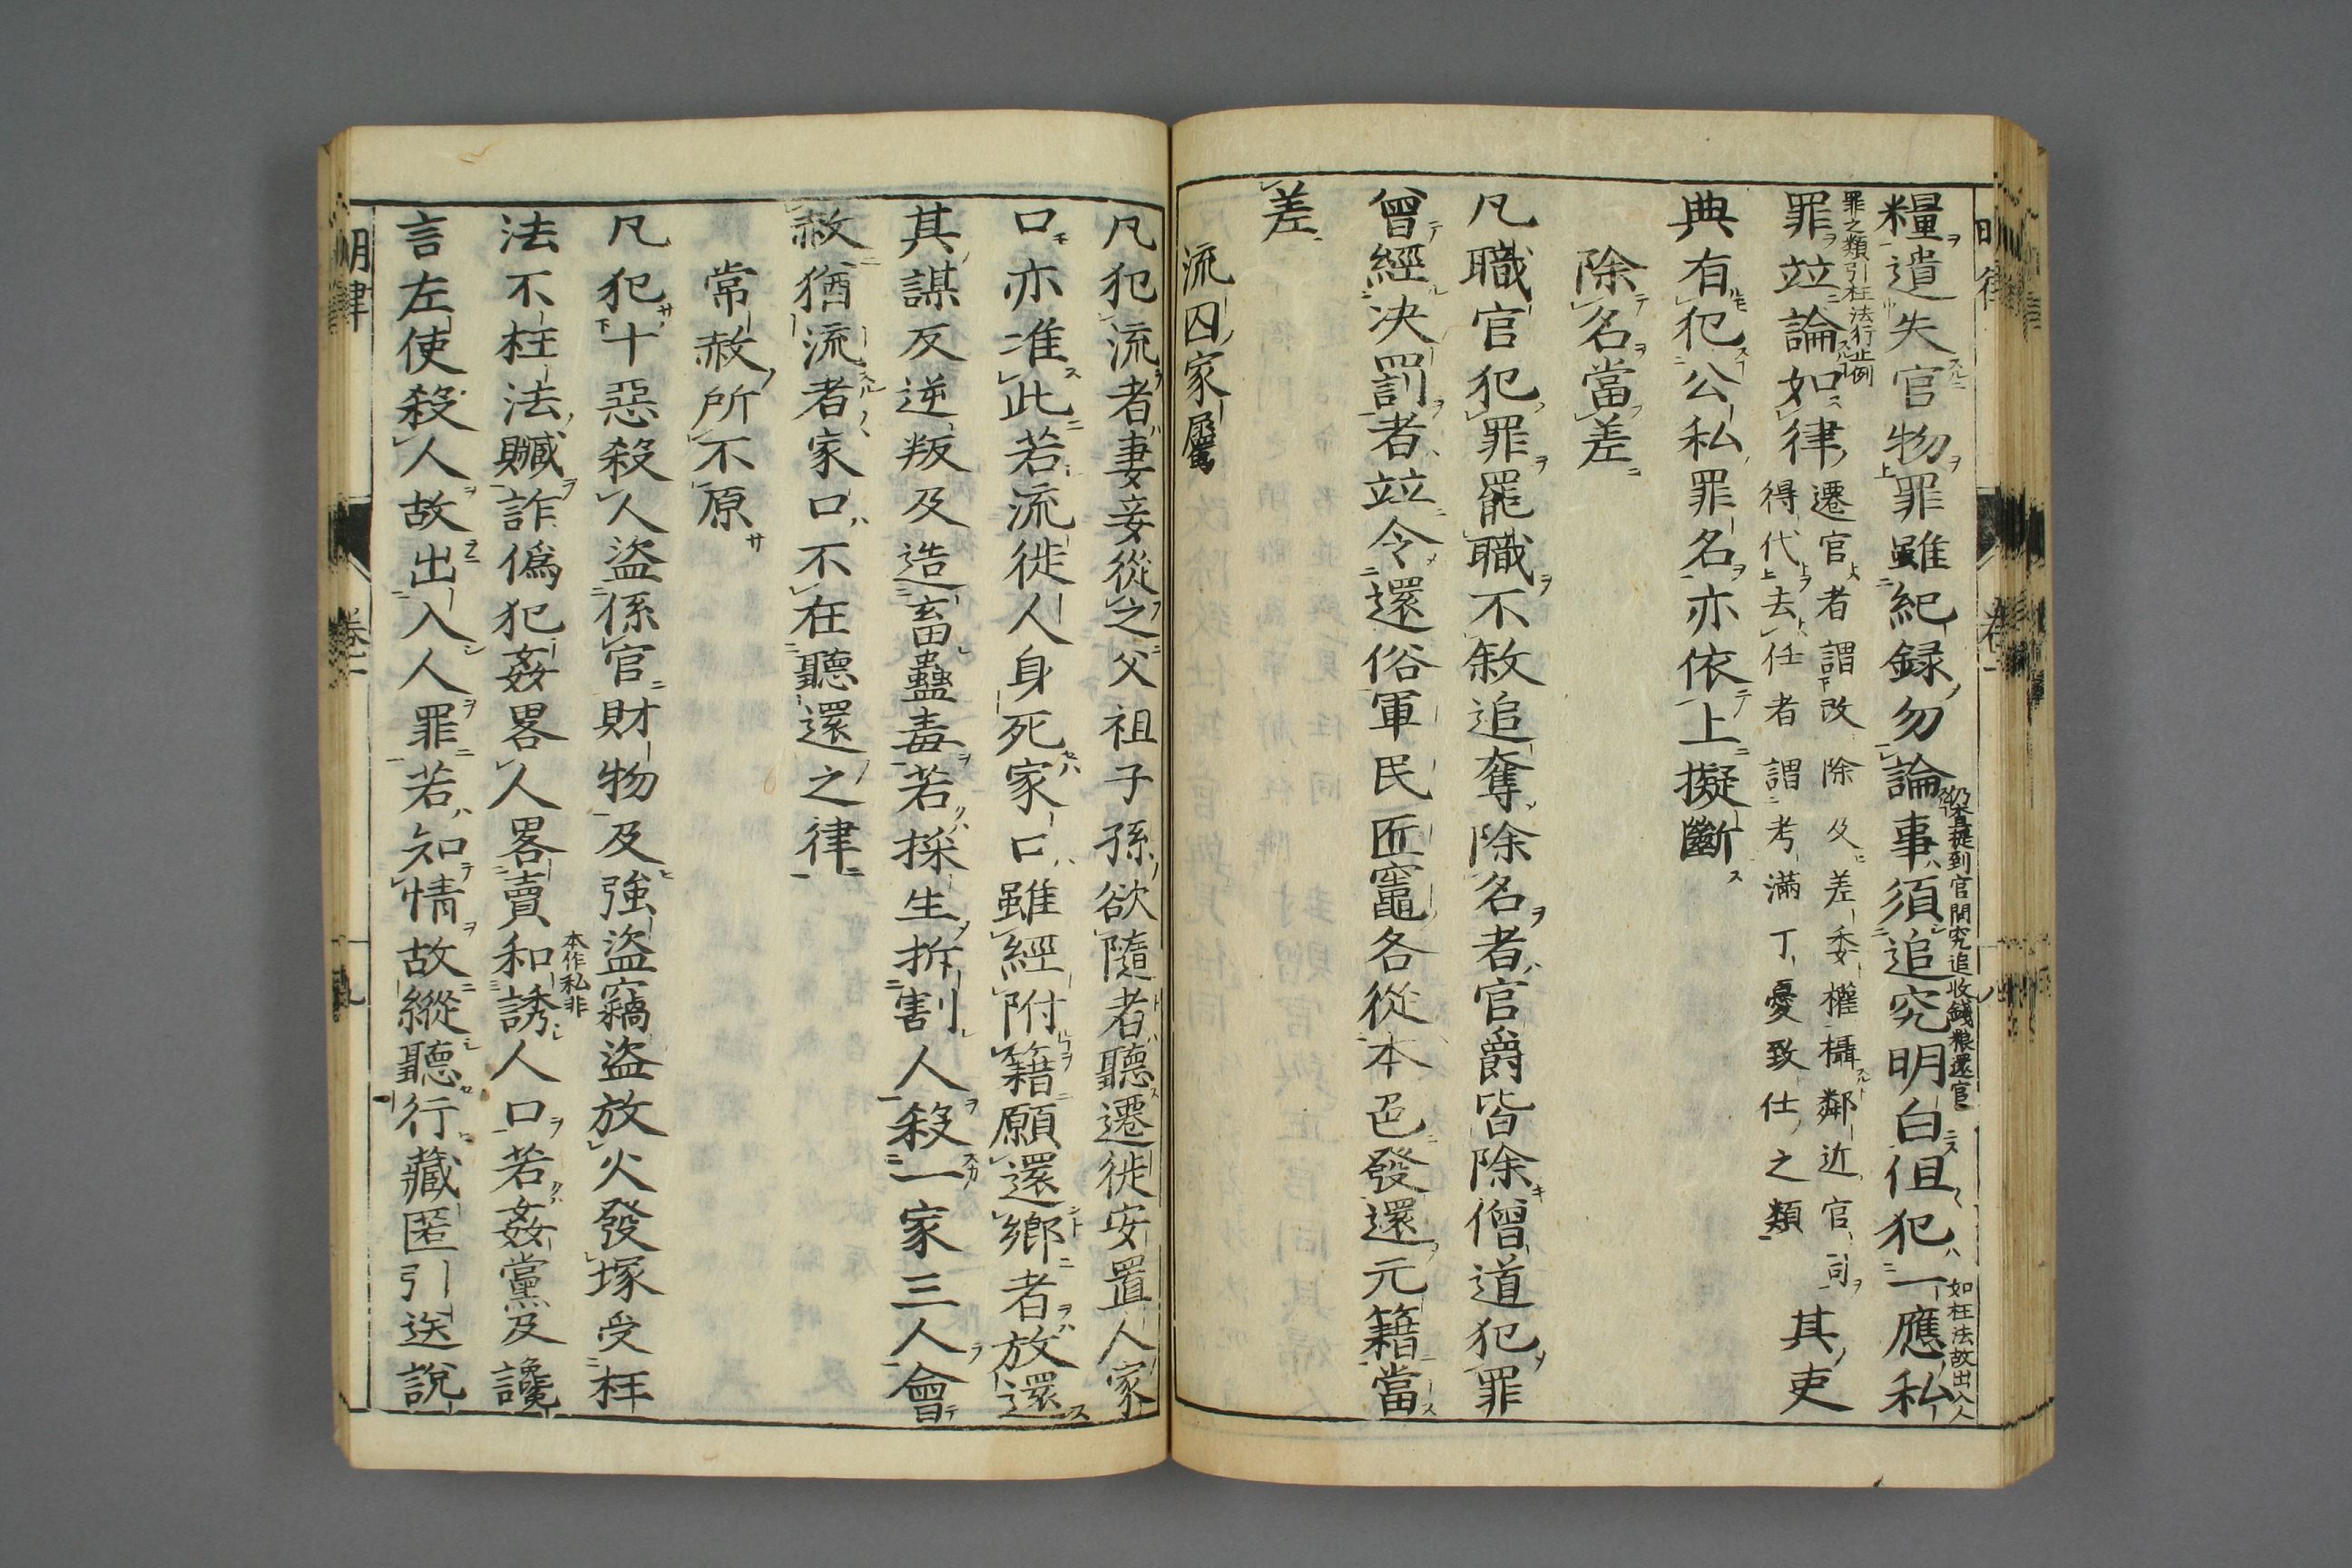 糧遺失官物罪雖紀録勿論事須追究明白但犯一應私
仍令提到官問究追收錢粮還官
如枉法故出入人
罪之類引枉法行止例
罪竝論如律
遷官者謂改除及差委權攝鄰近官司
得代去任者謂考滿丁憂致仕之類
其吏
典有犯公私罪名亦依上擬斷
除名當差
凡職官犯罪罷職不敘追奪除名者官爵皆除僧道犯罪
曾經決罰者竝令還俗軍民匠竈各從本色發還元籍當
差
流囚家屬
凡犯流者妻妾從之父祖子孫欲隨者聽遷徙安置人家
口亦准此若流徙人身死家口雖經附籍願還鄉者放還
其謀反逆叛及造畜蠱毒若採生拆割人殺一家三人會
赦猶流者家口不在聽還之律
常赦所不原
凡犯十惡殺人盜係官財物及強盜竊盜放火發塚受枉
法不枉法贓詐偽犯姦畧人畧賣和誘人口若姦黨及讒
本作私非
言左使殺人故出入人罪若知情故縱聽行藏匿引送說
明律
卷一
九